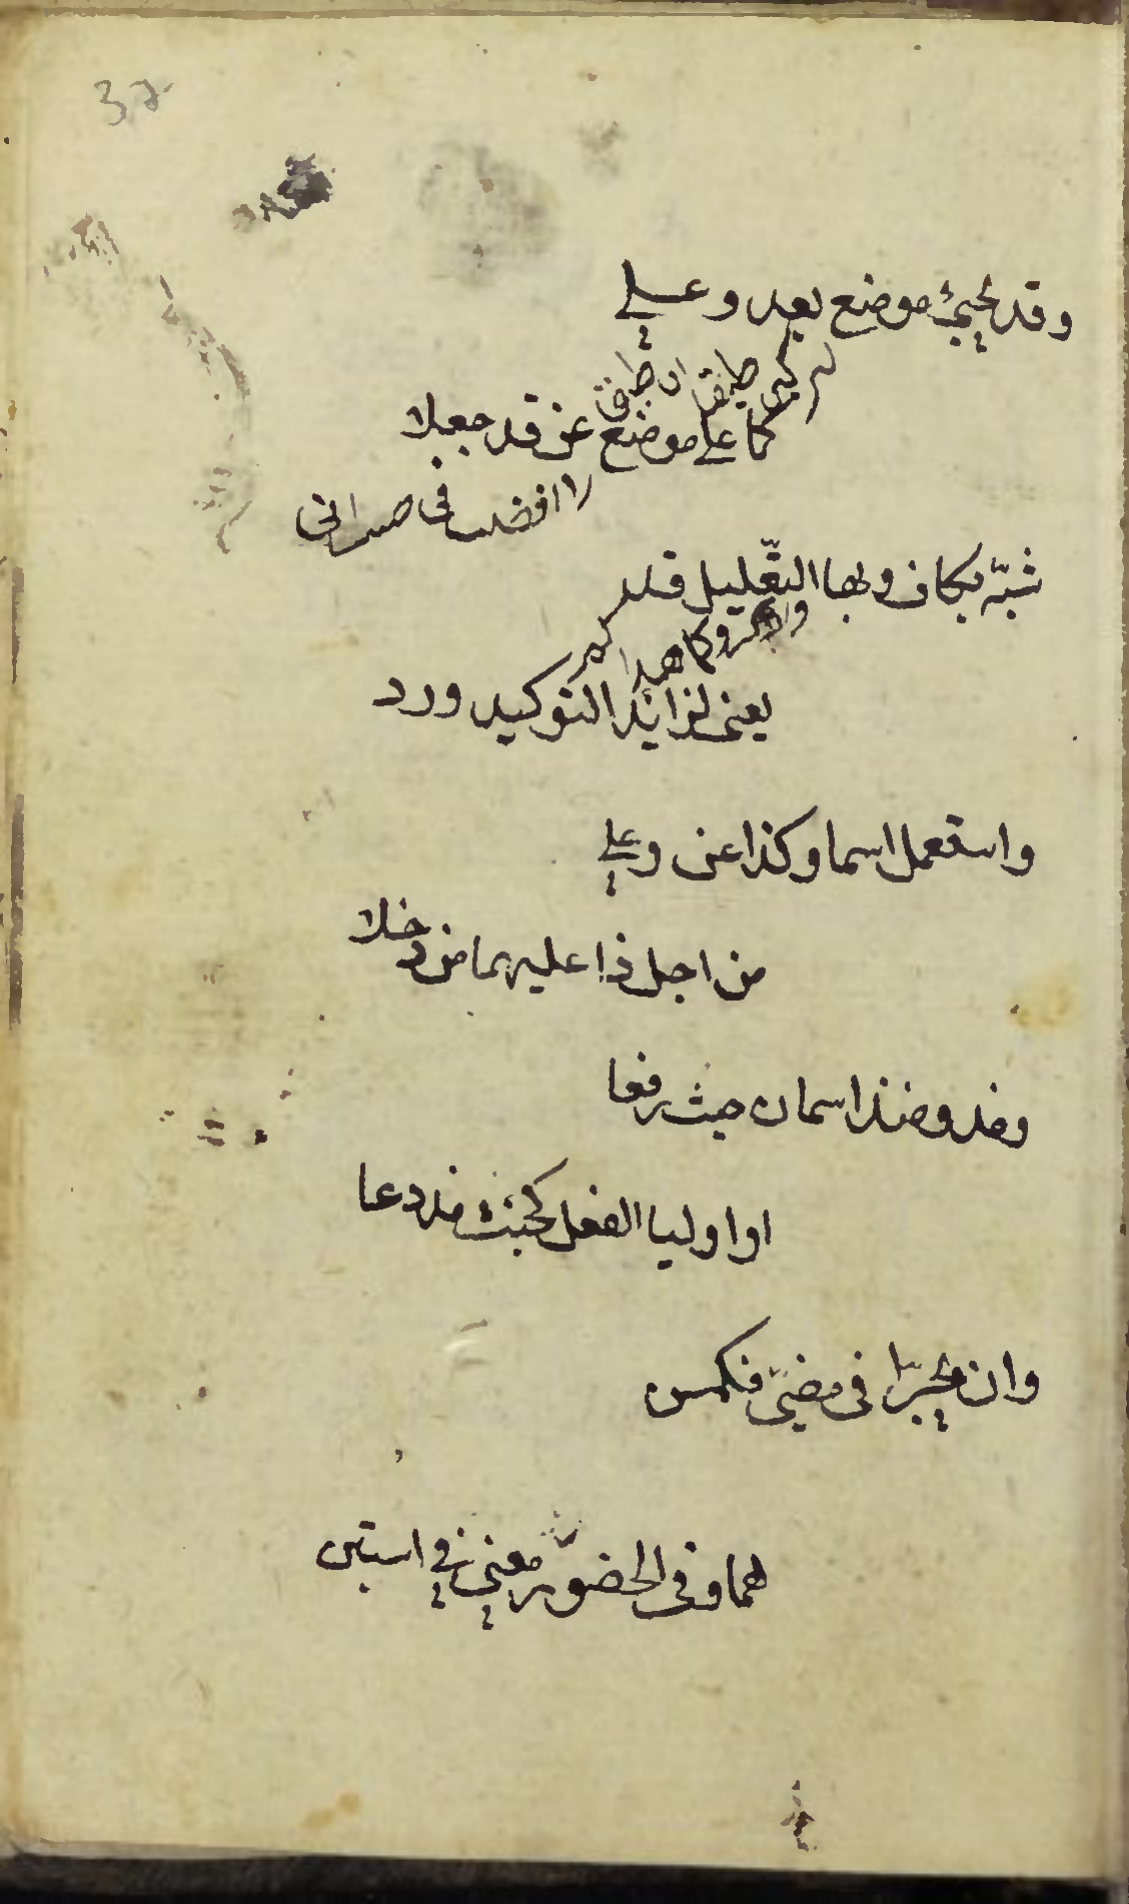 37
وقد يجئ موضع بعد وعلى
لتركبن طبقا ان طبق
كما على موضع عن قد جعلا
شبه بكاف وبها التعليل قد
واذكروه كما هداكم
يعنى لزائد التوكيد ورد
واستعمل اسما وكذا عن وعلى
من اجل ذا عليهما من دخلا
ومذ ومنذ اسمان حيث رفعا
او اوليا الفعل كجئت مذ دعا
وان يجرا فى مضى فكمن
هما وفى الحضور معنى فى استبن